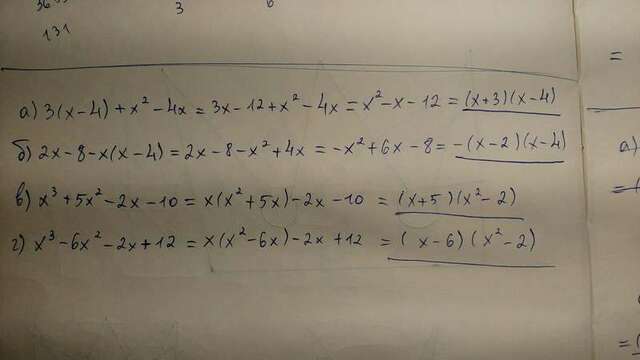 131
3
а) 3(x-4)+x²-4x=3x-12+x²-4x=x²-x-12=(x+3)(x-4)
б) 2x-8-x(x-4)=2x-8-x²+4x=-x²+6x-8=-(x-2)(x-4)
в) x³+5x²-2x-10=x(x²+5x)-2x-10=(x+5)(x²-2)
г) x³-6x²-2x+12=x(x²-6x)-2x+12=(x-6)(x²-2)
=
а)
=